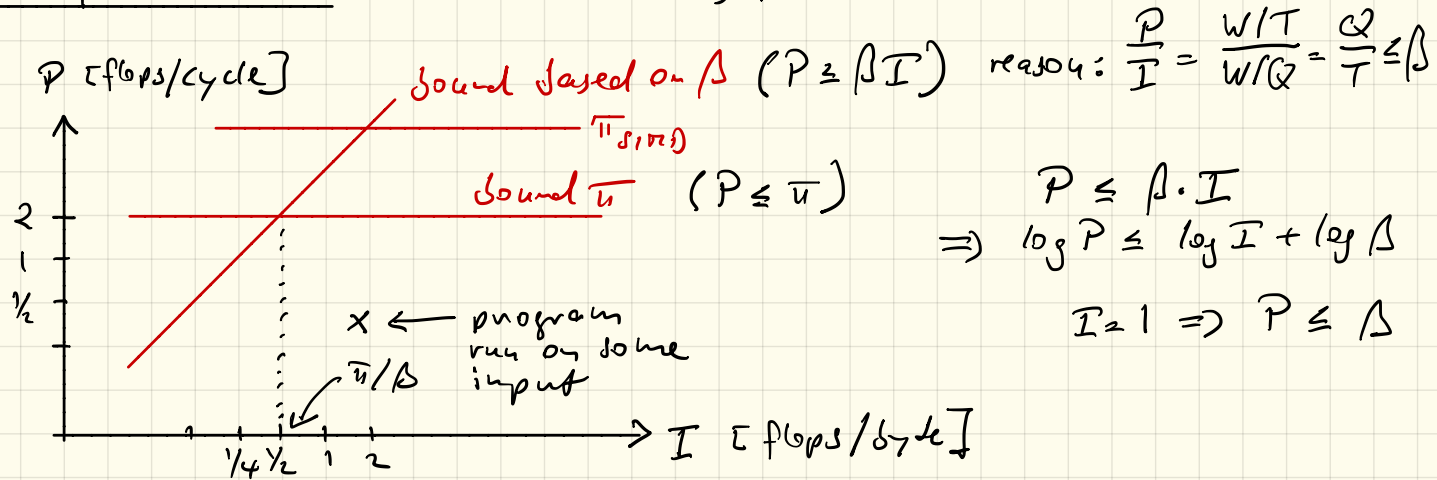 P [flops/cycle]
bound based on β (P ≤ βI)
reason: P/I = (W/T)/(W/Q) = Q/T ≤ β
π_SIMD
bound π (P ≤ π)
P ≤ β · I
⇒ log P ≤ log I + log β
I = 1 ⇒ P ≤ β
2
1
1/2
x ← program
run on some
input
π/β
1/4 1/2 1 2
I [flops/byte]